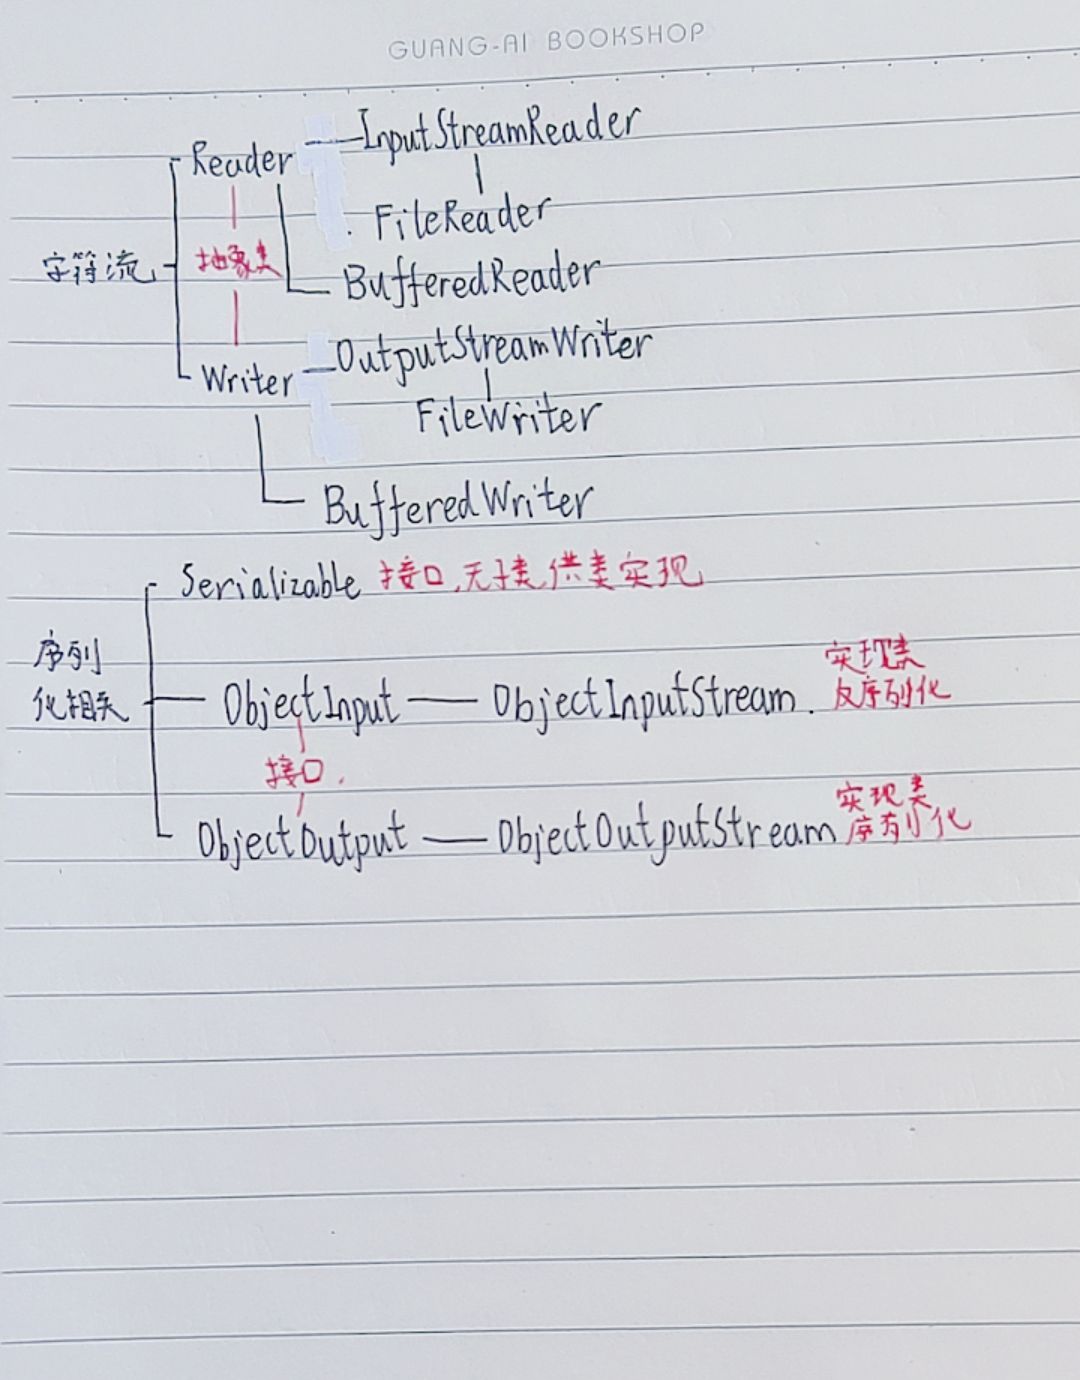 GUANG-AI BOOKSHOP
InputStreamReader
Reader
FileReader
字符流 抽象类
BufferedReader
OutputStreamWriter
Writer
FileWriter
BufferedWriter
Serializable 接口,无子类,供类实现
序列
化相关
实现类
ObjectInput ObjectInputStream. 反序列化
接口.
实现类
ObjectOutput ObjectOutputStream 序列化